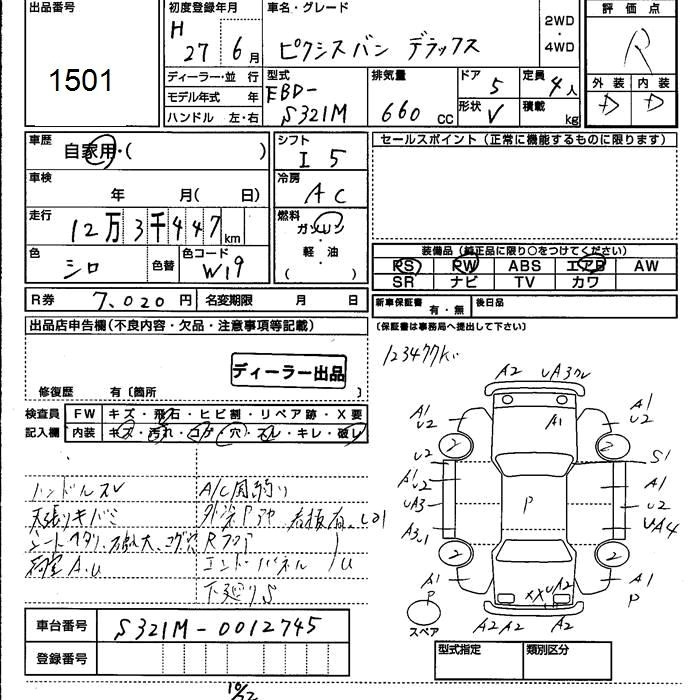 出品番号
1501
初度登録年月
H
27 6月
車名・グレード
ピクシスバン デラックス
2WD
・
4WD
評価点
R
外装 内装
D D
ディーラー・並 行
モデル年式 年
ハンドル 左・右
型式
EBD-
S321M
排気量
660 cc
ドア 5
形状 V
定員 4人
積載 kg
車歴
自家用・( )
車検
年 月( 日)
走行
12万3千447km
色
シロ
色替
色コード
W19
シフト
I 5
冷房
AC
燃料
ガソリン
・
軽 油
( )
セールスポイント(正常に機能するものに限ります)
装備品(純正品に限り○をつけてください)
PS PW ABS エアB AW
SR ナビ TV カワ
R券 7,020円 名変期限 月 日
新車保証書 有・無 後日品
(保証書は事務局へ提出して下さい)
出品店申告欄(不良内容・欠品・注意事項等記載)
ディーラー出品
修復歴 有〔箇所 〕
検査員 FW キズ・飛石・ヒビ割・リペア跡・X要
記入欄 内装 キズ・汚れ・コゲ・穴・スレ・キレ・破レ
123477K
A2 UA3
A1
U2
A1
A1
U2
2
2
U2
S1
A1
U2
A1
UA3
P
U2
UA4
2
2
A1
P
XXUA2
A1
P
スペア
A2A2 A2
ハンドルスレ
天張りキバミ
エンドパネル
下廻りS
車台番号 S321M-0012745
登録番号
型式指定 類別区分